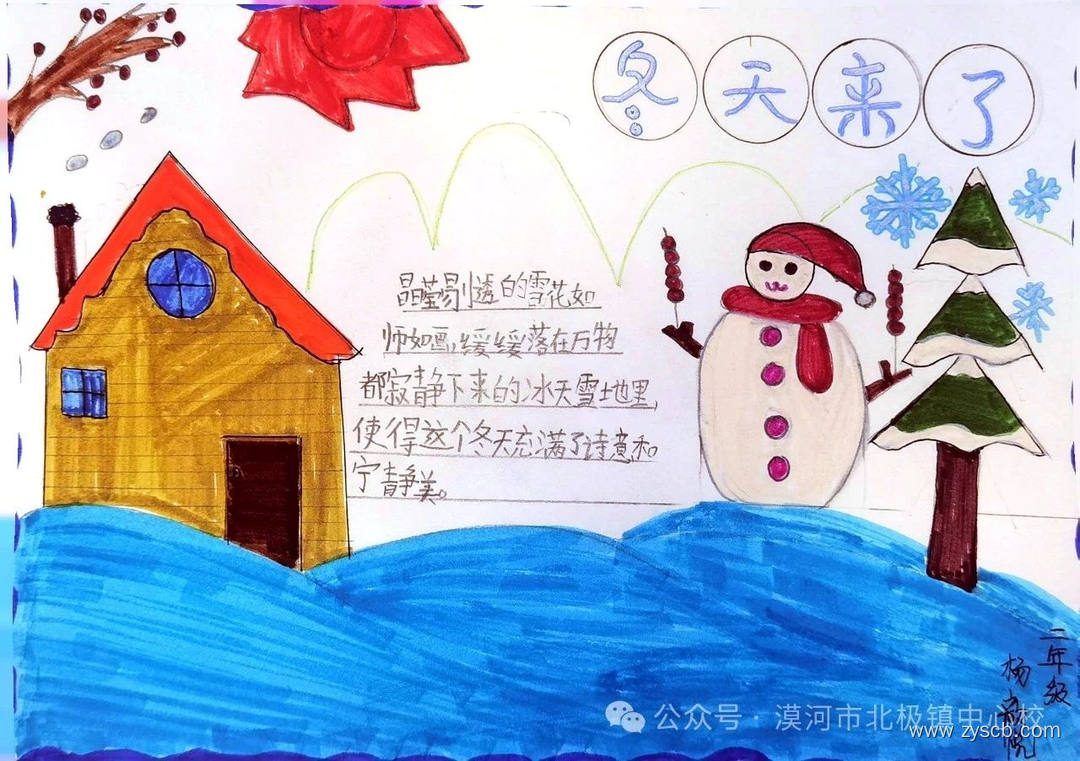 冬天来了
晶莹剔透的雪花如
师如画,缓缓落在万物
都寂静下来的冰天雪地里,
使得这个冬天充满了诗意和
宁静美。
二年级
杨
公众号·漠河市北极镇中心校
www.zyscb.com